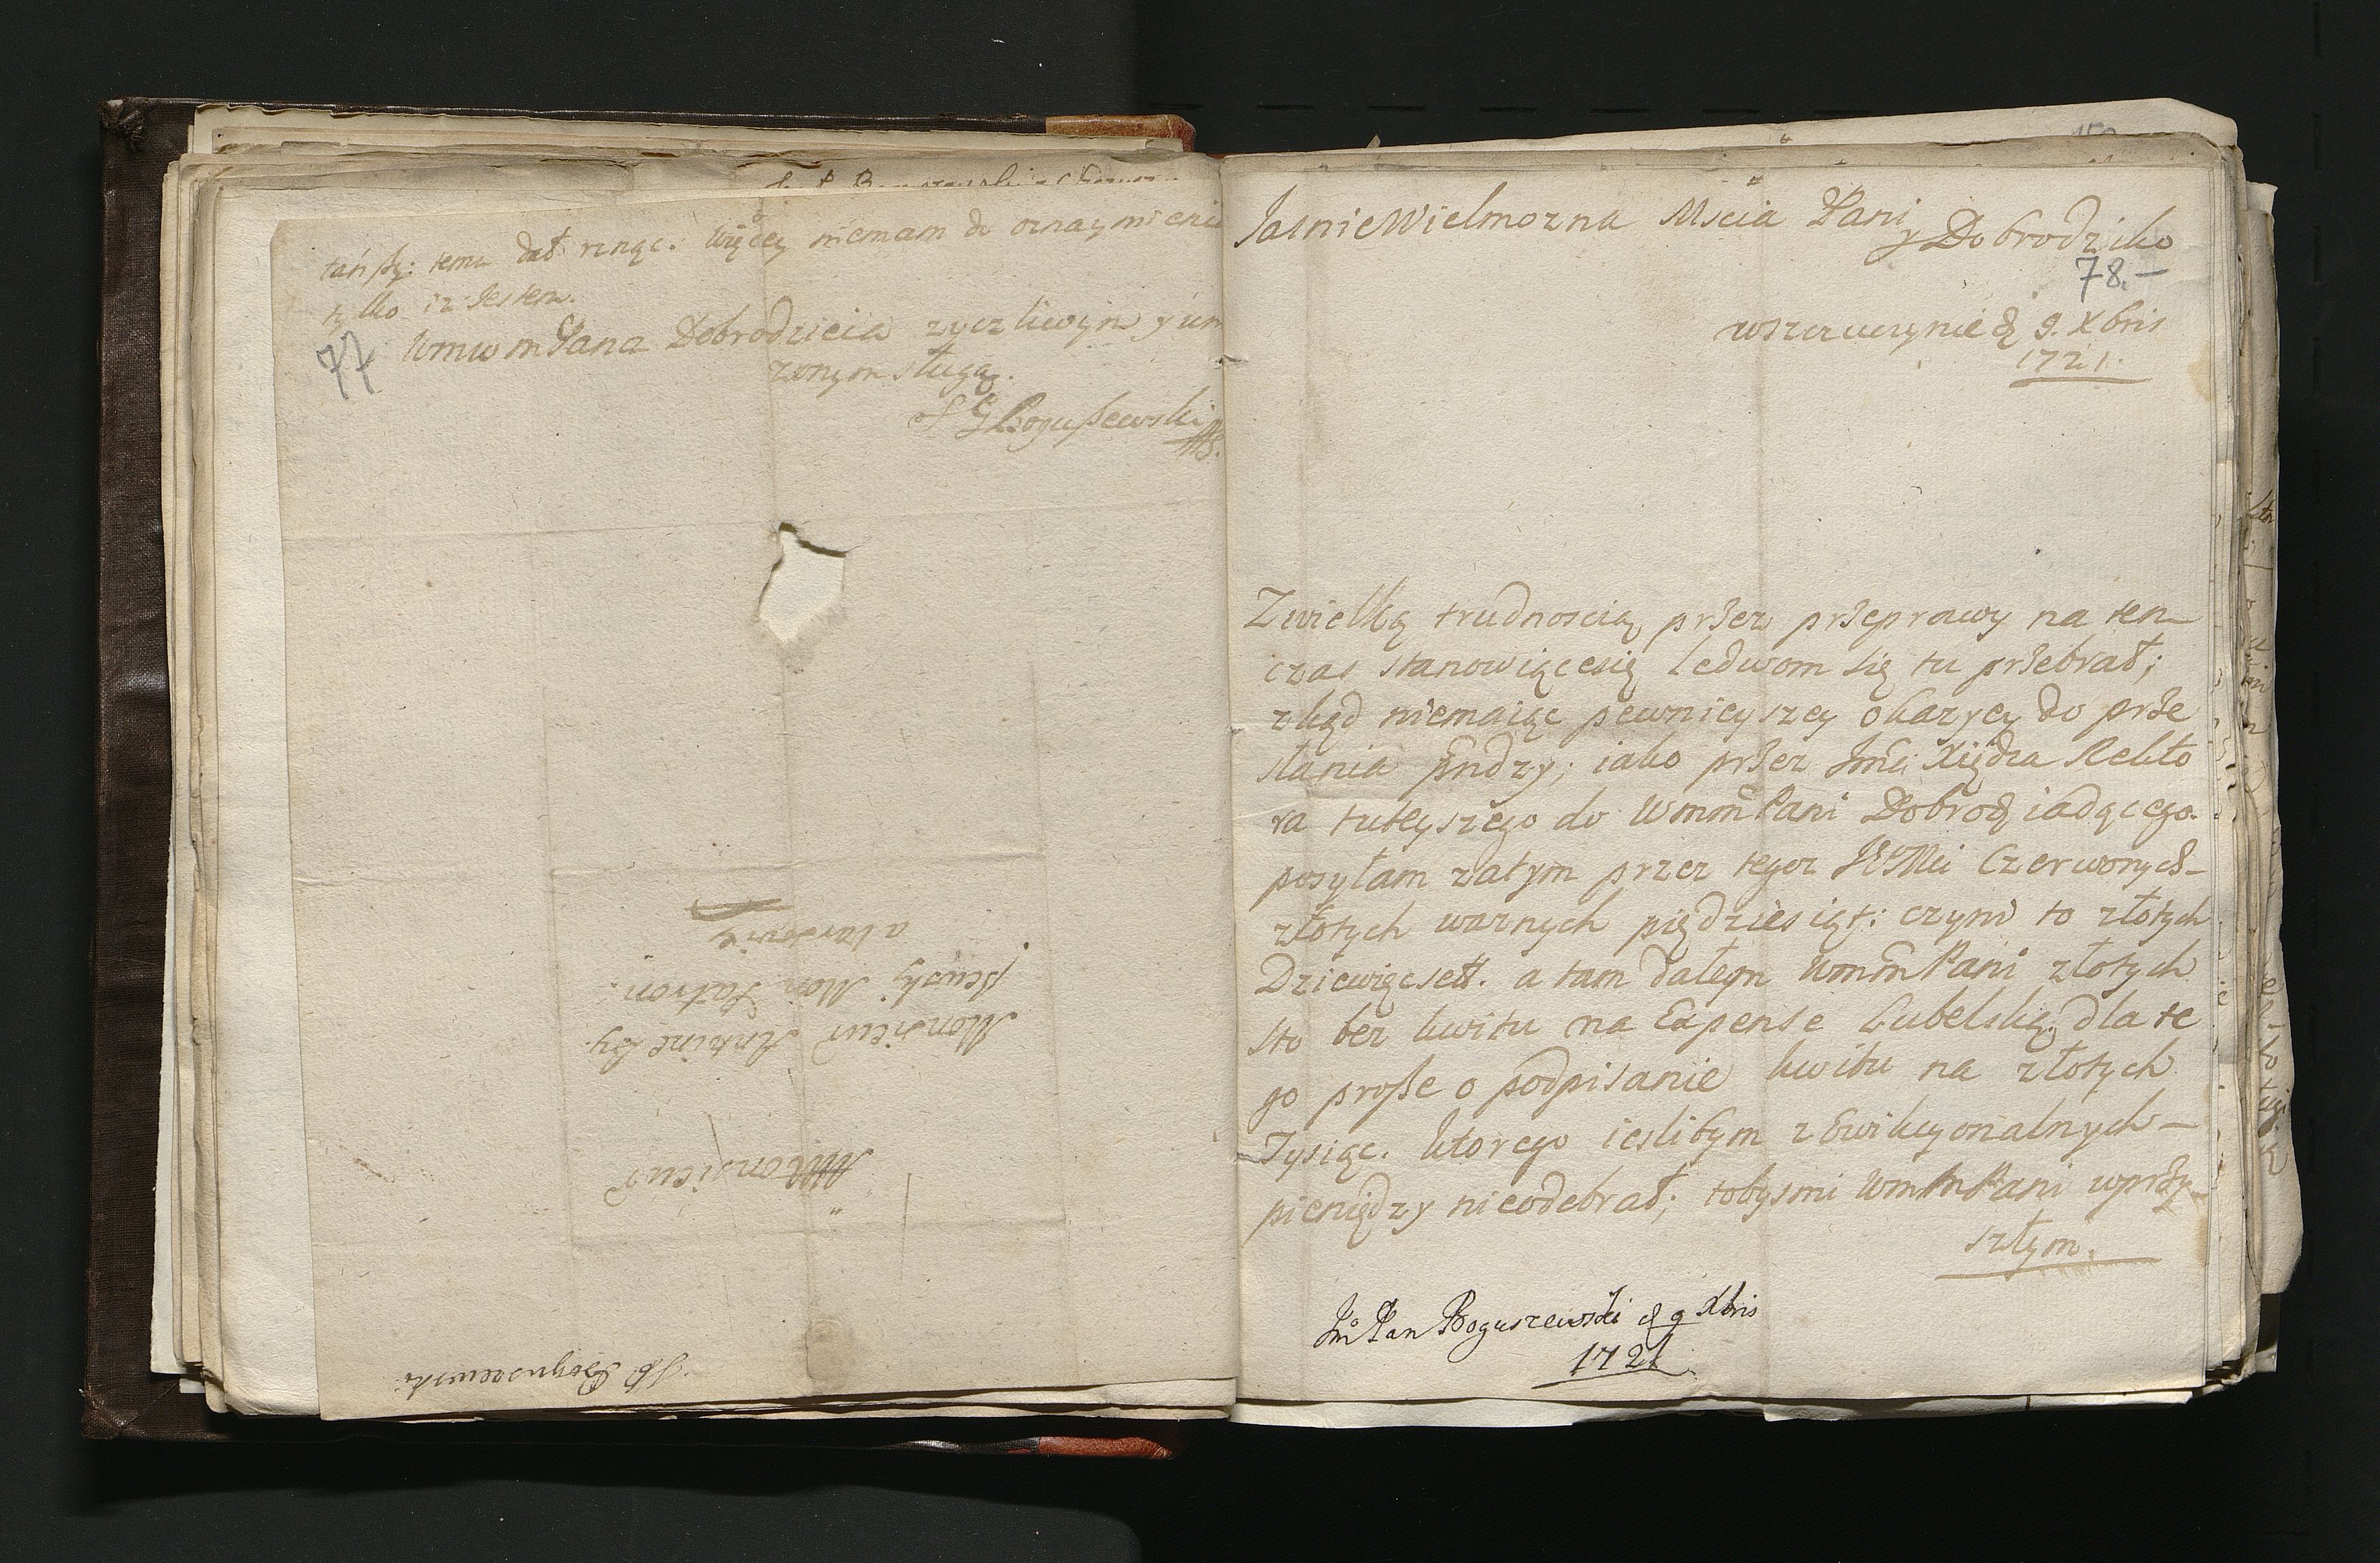 tańßy: temu dał ręnąc. Więcey niemam do oznaymienia
tylko iz Jestem.
77
WmwmPana Dobrodzieia zyczliwym y uni
zonym sługą.
S G Bogußewski
Monsieur
Monsieur Antoine
ßewsky Mon Patron:
a Varsovie
JP. Boguszewski
JasnieWielmozna Mscia Pani
y Dobrodziko
78.-
wszczuczynie d 9. Xbris
1721.
Z wielką trudnoscią przez przeprawy na ten
czas stanowiącesię ledwom się tu przebrał;
zkąd niemaiąc pewnieyszey okazyey do prze
słania pndzy; iako przez Jmci Xiędza Rekto
ra tuteyszego do WmmPani Dobrodz iadącego.
posyłam zatym przez tegoz JEMci Czerwonych
złotych waznych piędziesiąt: czyni to złotych
Dziewięcset. a tam dałem WmmPani złotych
sto bez kwitu na Expense Lubelską. dla te
go proße o podpisanie kwitu na złotych
Tysiąc. ktorego ieslibym z Ewikcyonalnych
pieniędzy nieodebrał; tobysmi WmmPani wprzy
szłym.
Jmo Pan Boguszewski d 9 Xbris
1721